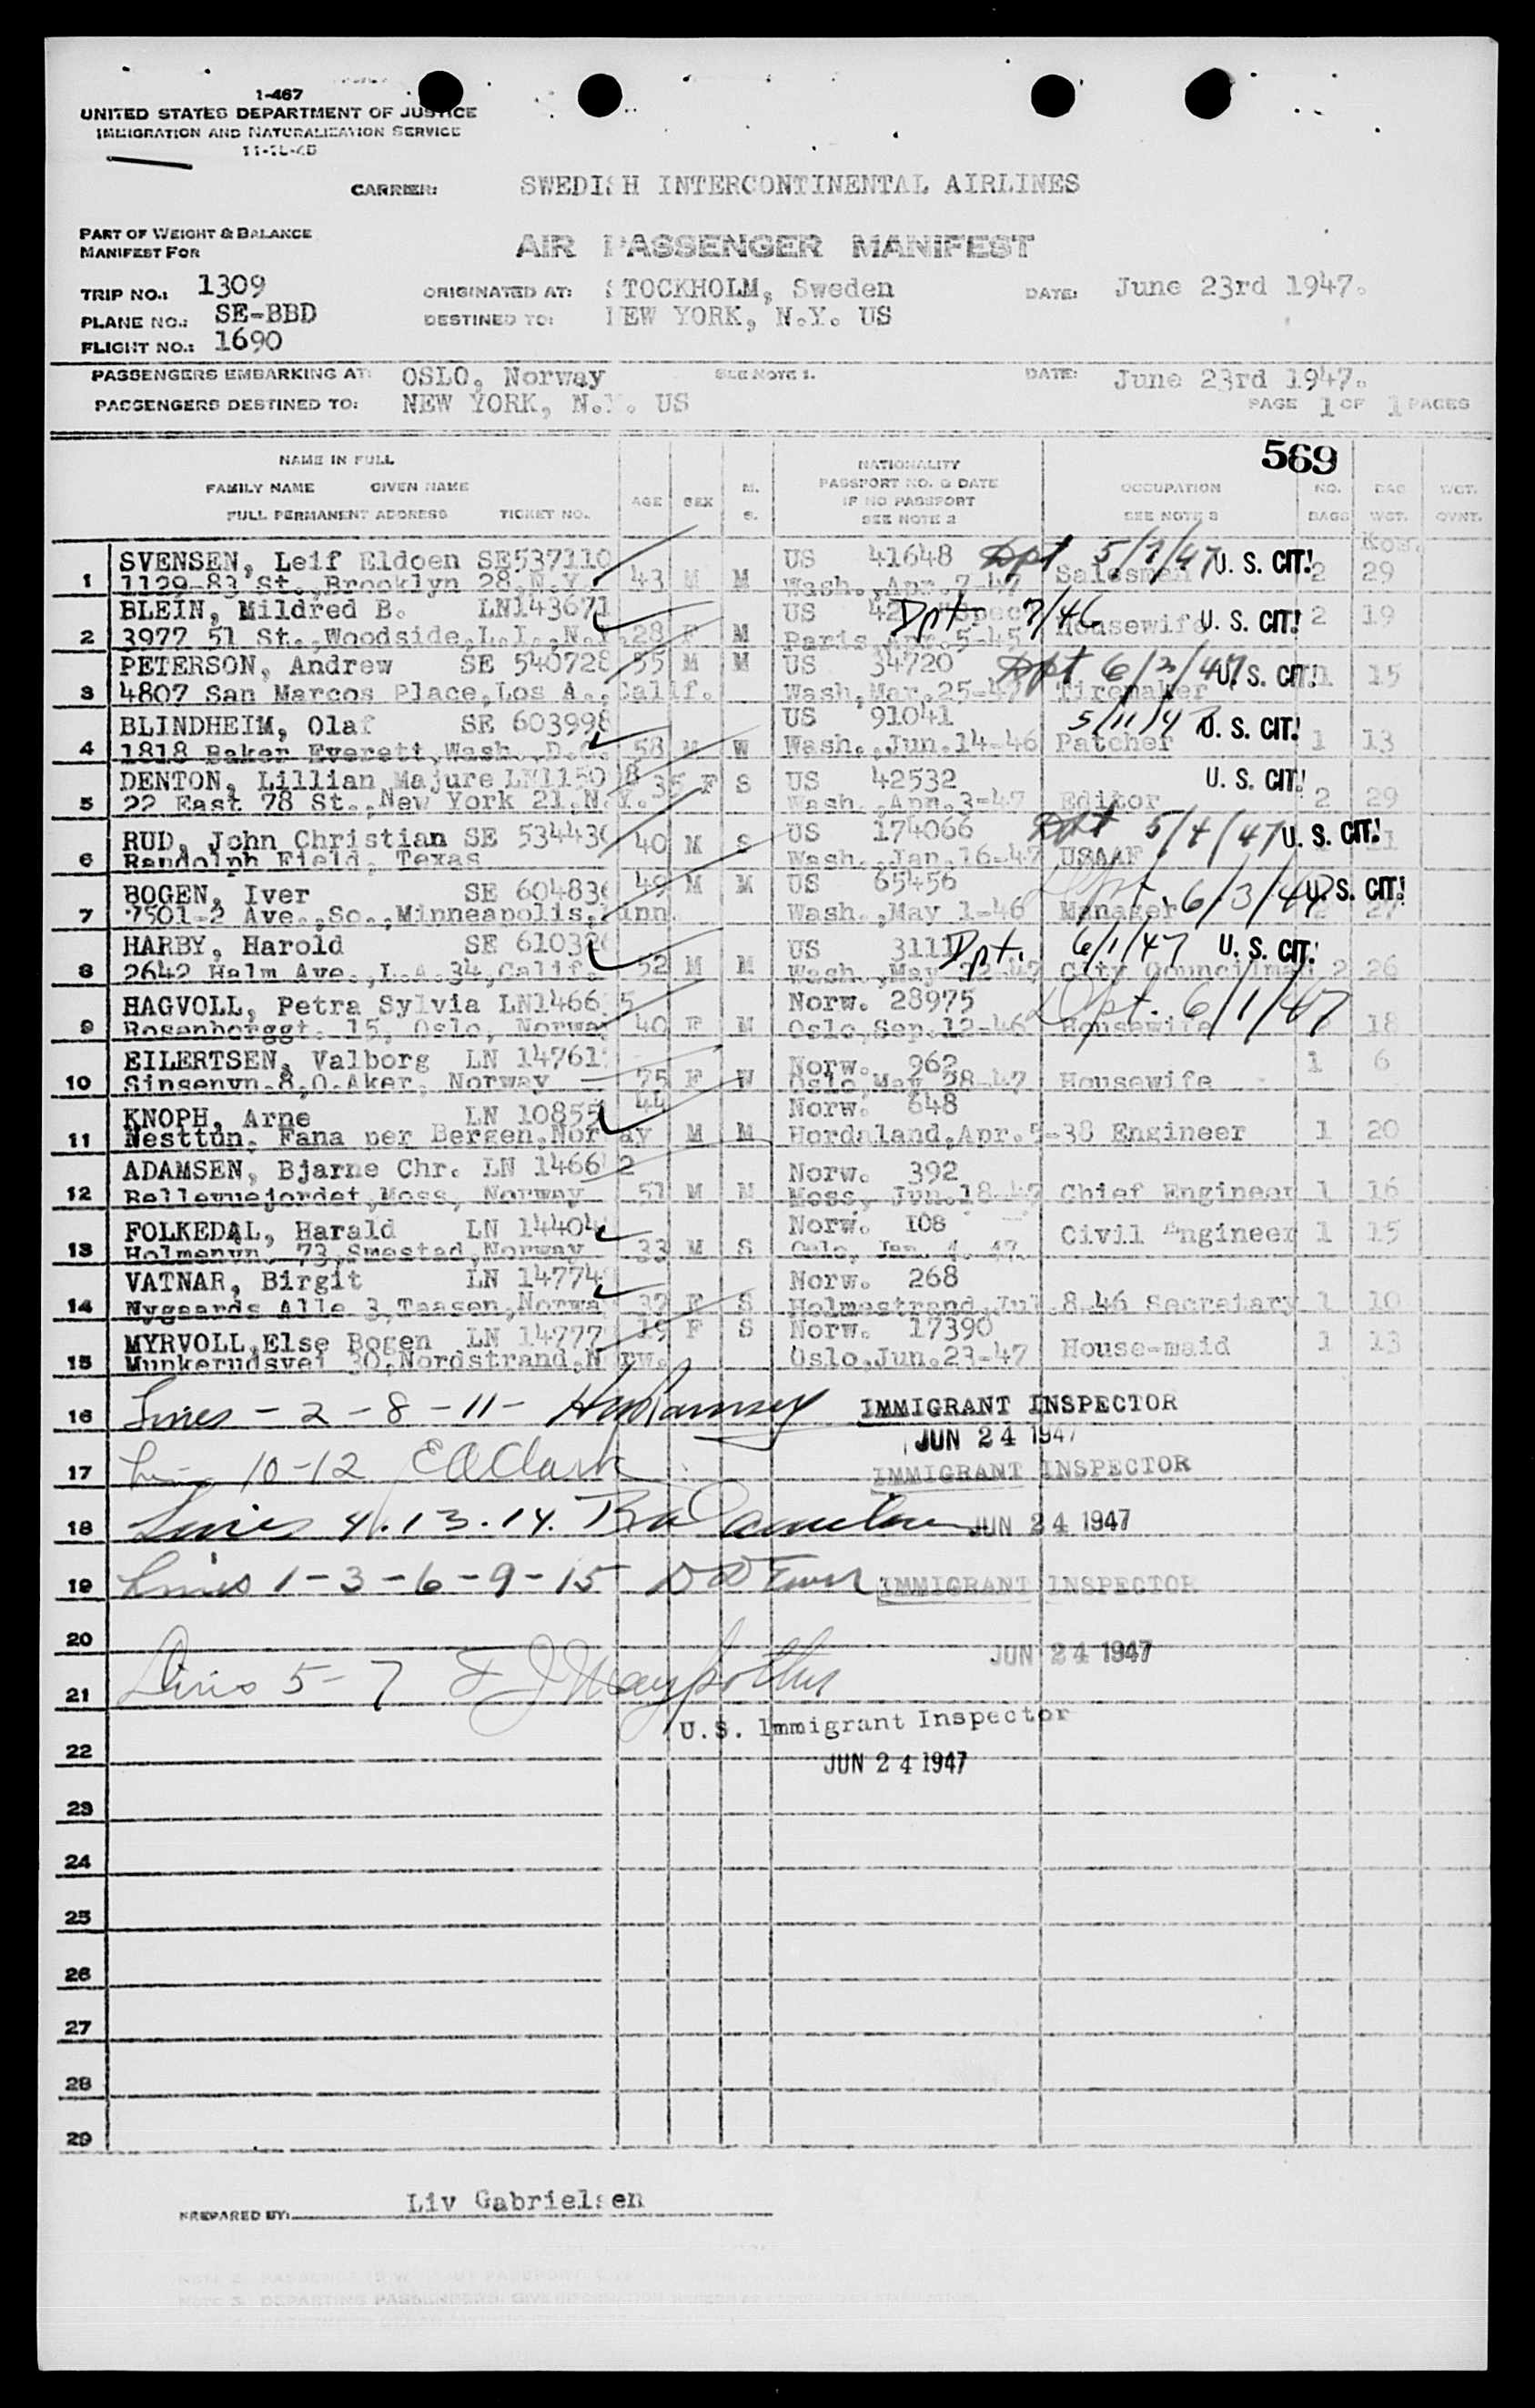 1-467
UNITED STATES DEPARTMENT OF JUSTICE
IMMIGRATION AND NATURALIZATION SERVICE
CARRIER: SWEDISH INTERCONTINENTAL AIRLINES
PART OF WEIGHT & BALANCE
MANIFEST FOR
AIR PASSENGER MANIFEST
TRIP NO.: 1309 ORIGINATED AT: STOCKHOLM, Sweden DATE: June 23rd 1947.
PLANE NO.: SE-BBD DESTINED TO: NEW YORK, N.Y. US
FLIGHT NO.: 1690
PASSENGERS EMBARKING AT: OSLO, Norway SEE NOTE 1. DATE: June 23rd 1947.
PASSENGERS DESTINED TO: NEW YORK, N.Y. US PAGE 1 OF 1 PAGES
569
NAME IN FULL
FAMILY NAME GIVEN NAME
FULL PERMANENT ADDRESS TICKET NO.
AGE SEX M. S.
NATIONALITY
PASSPORT NO. & DATE
IF NO PASSPORT
SEE NOTE 2
OCCUPATION
SEE NOTE 3
NO. BAGS
BAG WGT.
WGT. OVWT.
1 SVENSEN, Leif Eldoen SE537110 US 41648 Dpt 5/7/47 U. S. CIT!
1129-83 St., Brooklyn 28, N.Y. 43 M M Wash., Apr. 7-47 Salesman 2 29
BLEIN, Mildred B. LN143671 US Dpt 7/46 U. S. CIT!
2 3977 51 St., Woodside, L.I., N.Y. 28 F M Paris, Apr. 5-45 Housewife 2 19
PETERSON, Andrew SE 540728 55 M M US 34720 Dpt 6/2/47 U. S. CIT!
3 4807 San Marcos Place, Los A., Calif. Wash, Mar. 25-47 Tiremaker 1 15
BLINDHEIM, Olaf SE 603998 US 91041 5/11/47 U. S. CIT!
4 1818 Baker Everett, Wash., D.C. 58 M W Wash., Jun. 14-46 Patcher 1 13
DENTON, Lillian Majure LN1150 8 35 F S US 42532 U. S. CIT!
5 22 East 78 St., New York 21, N.Y. Wash., Apr. 3-47 Editor 2 29
RUD, John Christian SE 53443 40 M S US 174066 Dpt 5/4/47 U. S. CIT!
6 Randolph Field, Texas Wash., Jan. 16-47 USAAF
BOGEN, Iver SE 60483 49 M M US 65456 Dpt. 6/3/47 U. S. CIT!
7 7501-2 Ave., So., Minneapolis, Minn. Wash., May 1-46 Manager 2 27
HARBY, Harold SE 61032 US 3111 Dpt. 6/1/47 U. S. CIT!
8 2642 Halm Ave., L.A. 34, Calif. 52 M M Wash., May 22-47 City Councilman 2 26
HAGVOLL, Petra Sylvia LN1466 5 Norw. 28975 Dpt. 6/1/47
9 Rosenborggt. 15, Oslo, Norway 40 F M Oslo, Sep. 12-46 Housewife 18
EILERTSEN, Valborg LN 14761 Norw. 962 1 6
10 Sinsenvn. 8, O. Aker, Norway 75 F W Oslo, May 28-47 Housewife
KNOPH, Arne LN 10855 44 Norw. 648
11 Nesttun, Fana per Bergen, Norway M M Hordaland, Apr. 5-38 Engineer 1 20
ADAMSEN, Bjarne Chr. LN 1466 2 Norw. 392
12 Bellevuejordet, Moss, Norway 51 M M Moss, Jun. 18-47 Chief Engineer 1 16
FOLKEDAL, Harald LN 14404 Norw. 108
13 Holmenvn. 73, Smestad, Norway 33 M S Oslo, Jan. 4. 47. Civil Engineer 1 15
VATNAR, Birgit LN 14774 Norw. 268
14 Nygaards Alle 3, Taasen, Norwa 37 F S Holmestrand, Jul. 8.46 Secretary 1 10
MYRVOLL, Else Bogen LN 14777 19 F S Norw. 17390
15 Munkerudsvei 30, Nordstrand, Norw. Oslo, Jun. 23-47 House-maid 1 13
16 Lines - 2 - 8 - 11 - IMMIGRANT INSPECTOR
JUN 24 1947
17 10-12 E A Clark IMMIGRANT INSPECTOR
18 Lines 4.13.14. JUN 24 1947
19 Lines 1-3-6-9-15 IMMIGRANT INSPECTOR
20 JUN 24 1947
21 Lines 5-7
U.S. Immigrant Inspector
22 JUN 24 1947
23
24
25
26
27
28
29
PREPARED BY: Liv Gabrielsen